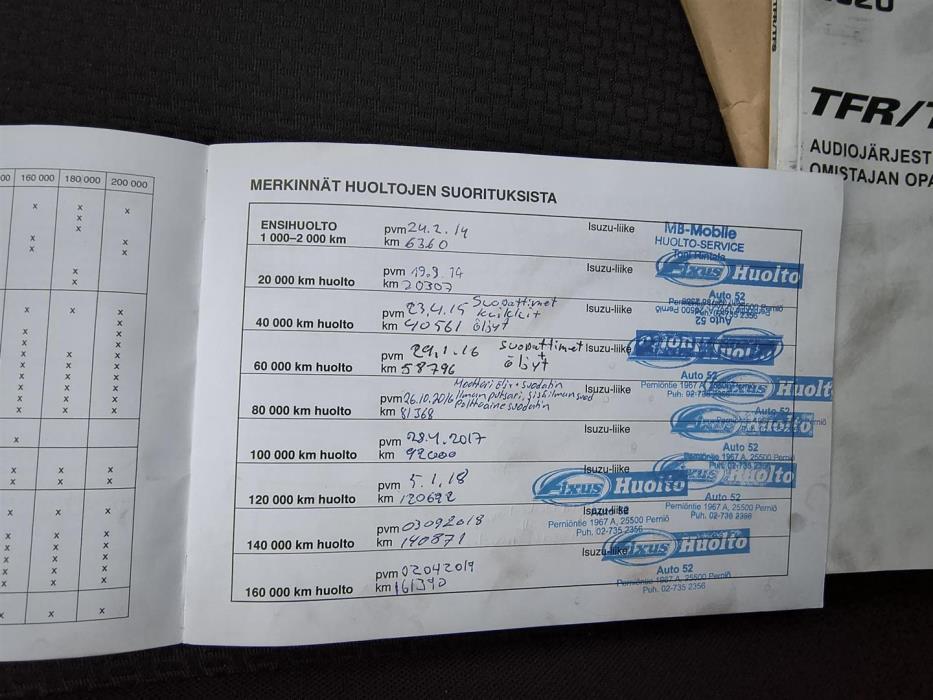 TFR/T
AUDIOJÄRJEST
OMISTAJAN OPA
00 160 000 180 000 200 000
MERKINNÄT HUOLTOJEN SUORITUKSISTA
ENSIHUOLTO pvm 24.2.14 Isuzu-liike MB-Mobile
1 000–2 000 km km 6360 HUOLTO-SERVICE
Toni Rintala
pvm 19.9.14 Isuzu-liike Fixus Huolto
20 000 km huolto km 20307 Auto 52
pvm 23.4.15 Suodattimet Isuzu-liike
40 000 km huolto km 40561 öljyt
Auto 52
pvm 29.1.16 Suodattimet Isuzu-liike
60 000 km huolto km 58796 + öljyt Huolto
Auto 52
Perniöntie 1967 A Fixus Huolt
Puh. 02-735
pvm 26.10.2016 Isuzu-liike
80 000 km huolto km 81368 Polttoainesuodatin
Huolto
pvm 28.4.2017 Auto 52
100 000 km huolto km 92000 Perniöntie 1967 A, 25500 Perniö
Puh. 02-735 2356
pvm 5.1.18 Isuzu-liike Fixus Huolto Huolto
120 000 km huolto km 120692 Auto 52
Perniöntie 1967 A, 25500 Perniö
Puh. 02-735 2356
Auto 52
Perniöntie 1967 A, 25500 Perniö
Puh. 02-735 2356
pvm 03092018 Isuzu-liike
140 000 km huolto km 140871
Isuzu-liike Fixus Huolto
pvm 02042019 Auto 52
160 000 km huolto km 161390 Perniöntie 1967 A, 25500 Perniö
Puh. 02-735 2356